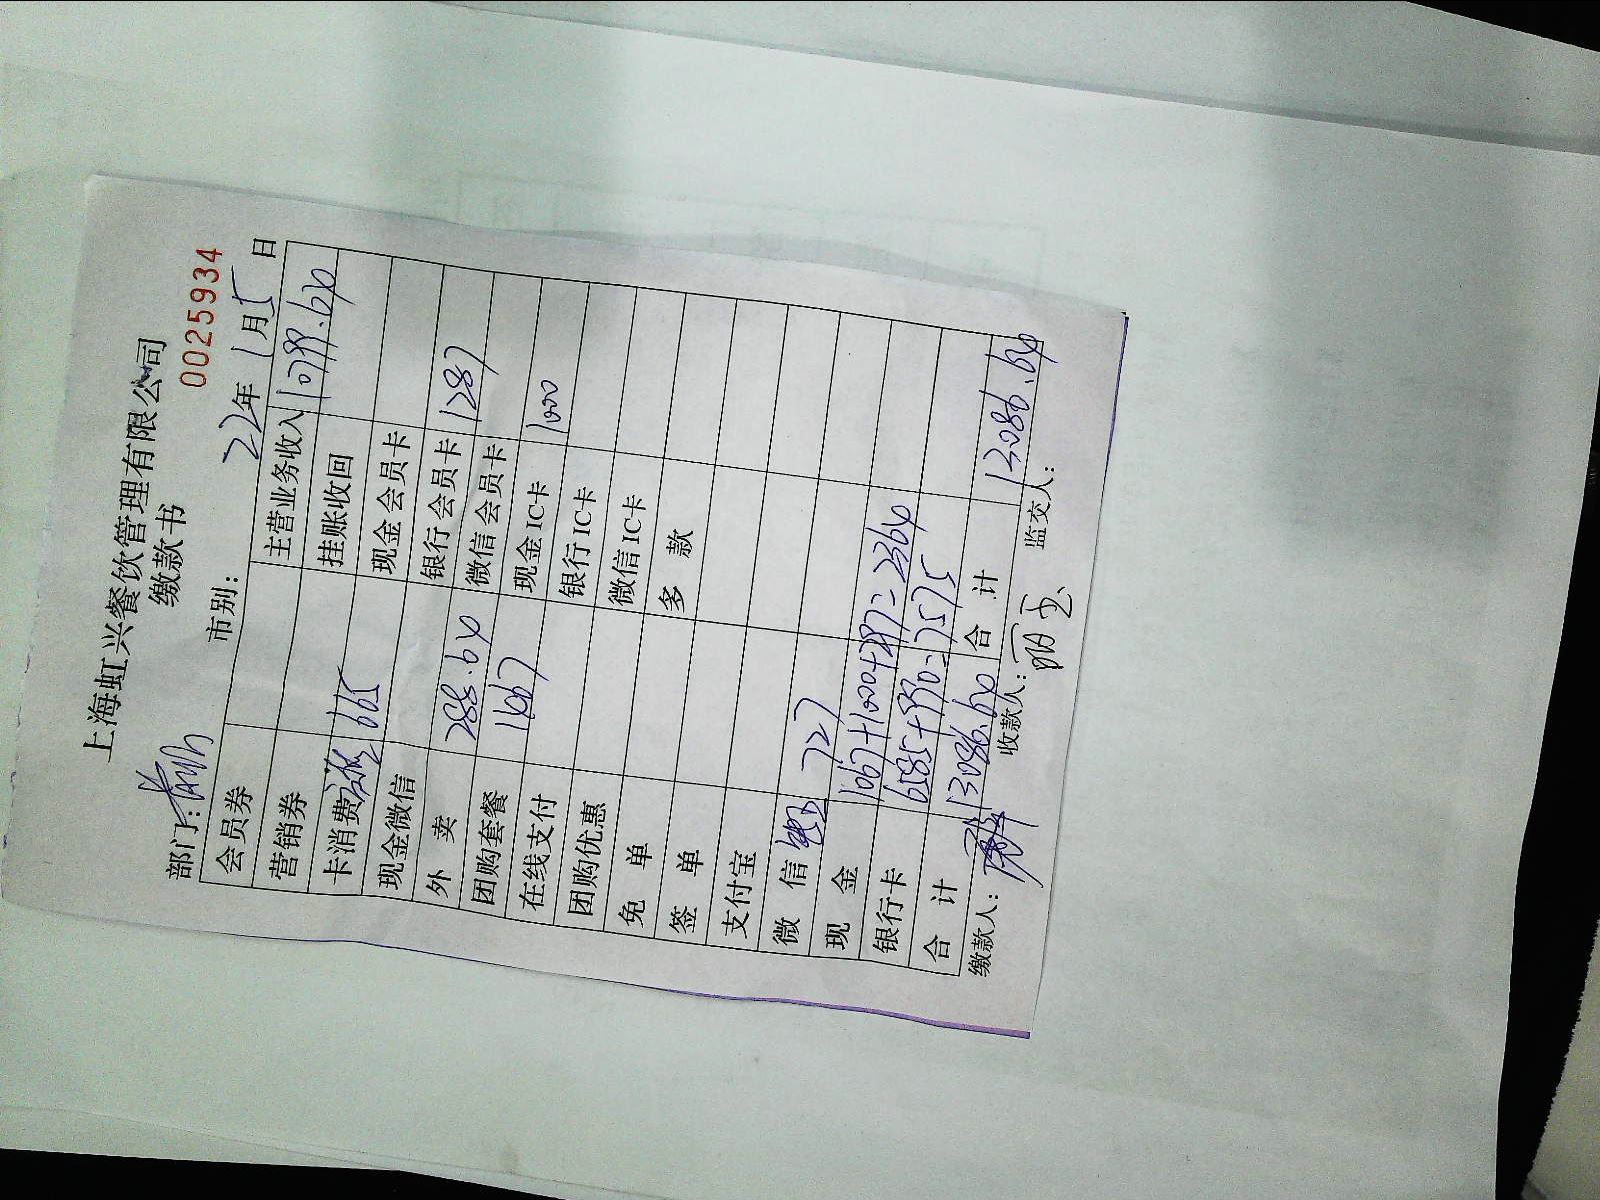 上海虹兴餐饮管理有限公司
缴款书
0025934
部门: 市别: 22年 1月5日
会员券 主营业务收入 10799.64
营销券 挂账收回
卡消费 665 现金会员卡
现金微信 银行会员卡 1287
外卖 288.64 微信会员卡
团购套餐 1667 现金IC卡 1000
在线支付 银行IC卡
团购优惠 微信IC卡
免单 多款
签单
支付宝
微信 727
现金 1067+1000+297=2364
银行卡 6585+990=7575
合计 13086.64 合计 13086.64
缴款人: 收款人: 监交人: